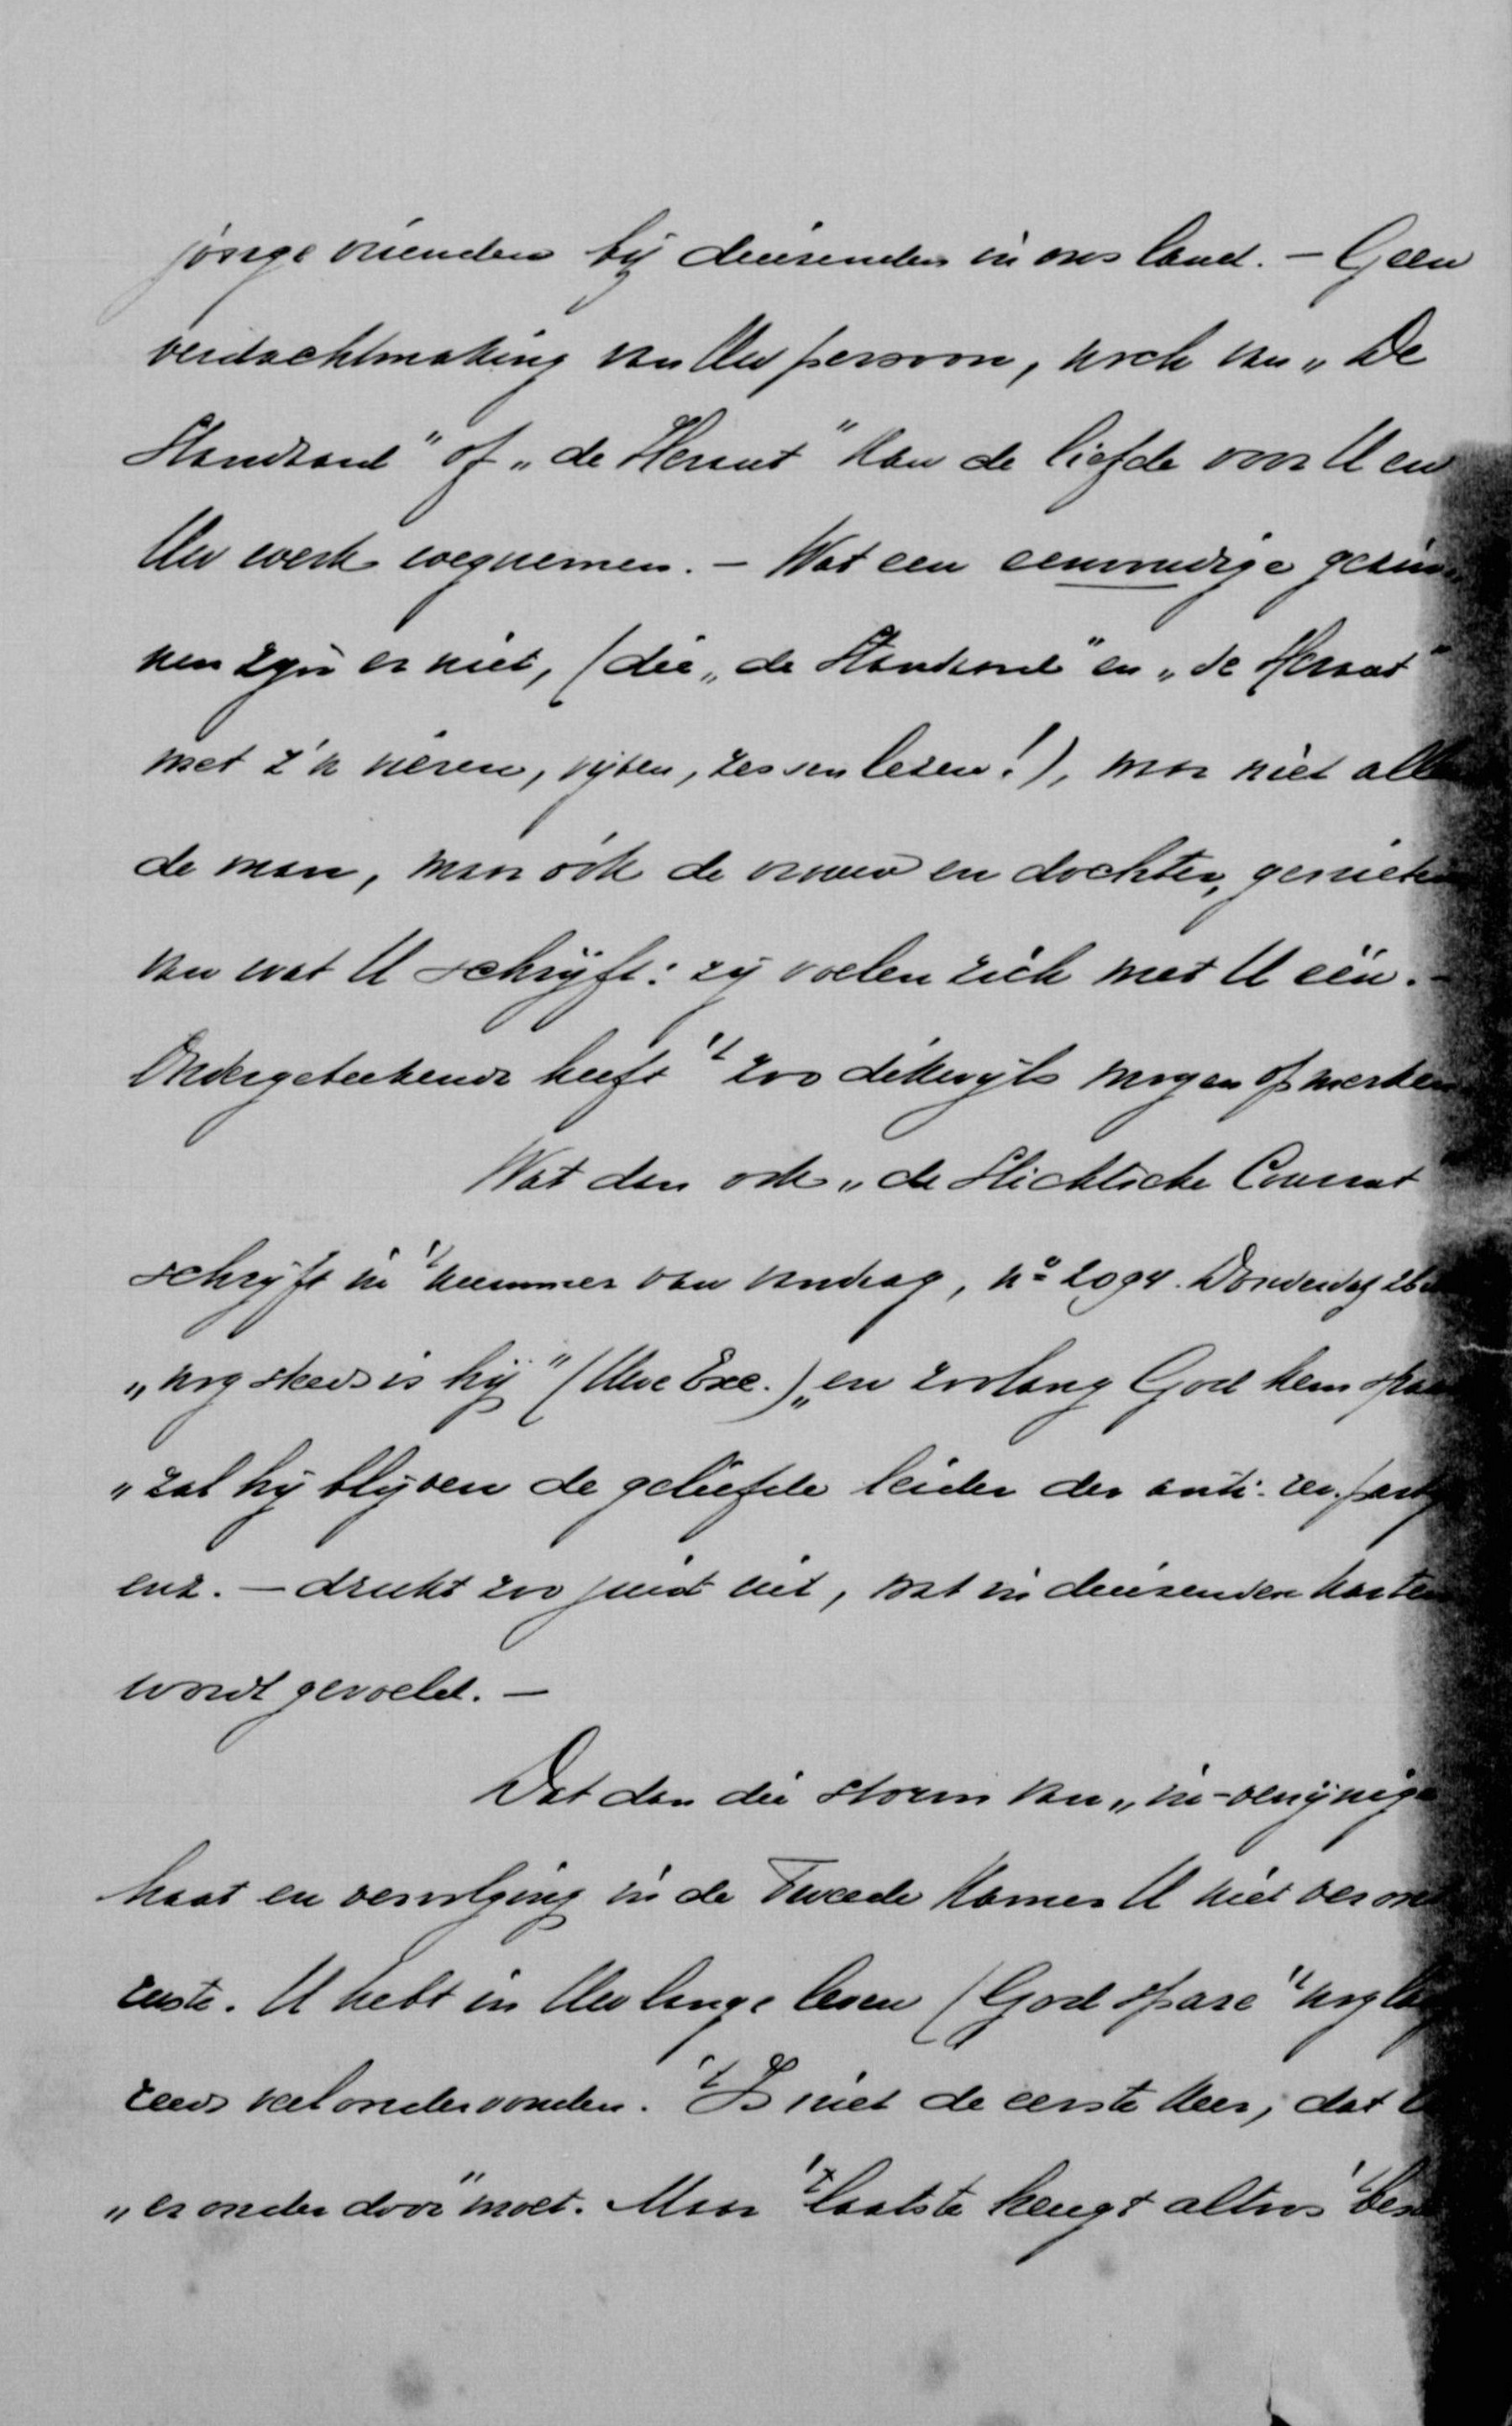 jonge vrienden bij duizenden in ons land. – Geen
verdachtmaking van Uw persoon, noch van „De
Standaard" of „de Heraut" kan de liefde voor U en
Uw werk wegnemen. – Wat een eenvoudige gezin
nen zijn er niet, (die „de Standaard" en „de Heraut"
met z'n vieren, vijven, zessen lezen!), waar niet alleen
de man, maar óók de vrouw en dochter, genieten
van wat U schrijft: zij voelen zich met U één. –
Ondergeteekende heeft 't zoo dikwijls mogen opmerken
Wat dan ook „de Stichtsche Courant
schrijft in 't nummer van vandaag, no 2094. Donderdag 26
„nog steeds is hij" (Uwe Exc.) „en zoolang God hem spaa
„zal hij blijven de geliefde leider der anti-rev. partij
enz. – drukt zoo juist uit, wat in duizenden harten
wordt gevoeld. –
Dat dan die storm van „in-venijnige
haat en vervolging in de Tweede Kamer U niet veront
ruste. U hebt in Uw lange leven (God spare 't nog la
reeds veel ondervonden. 't Is niet de eerste keer, dat U
„er onder door" moet. Maar 't laatste heugt altoos 't bes